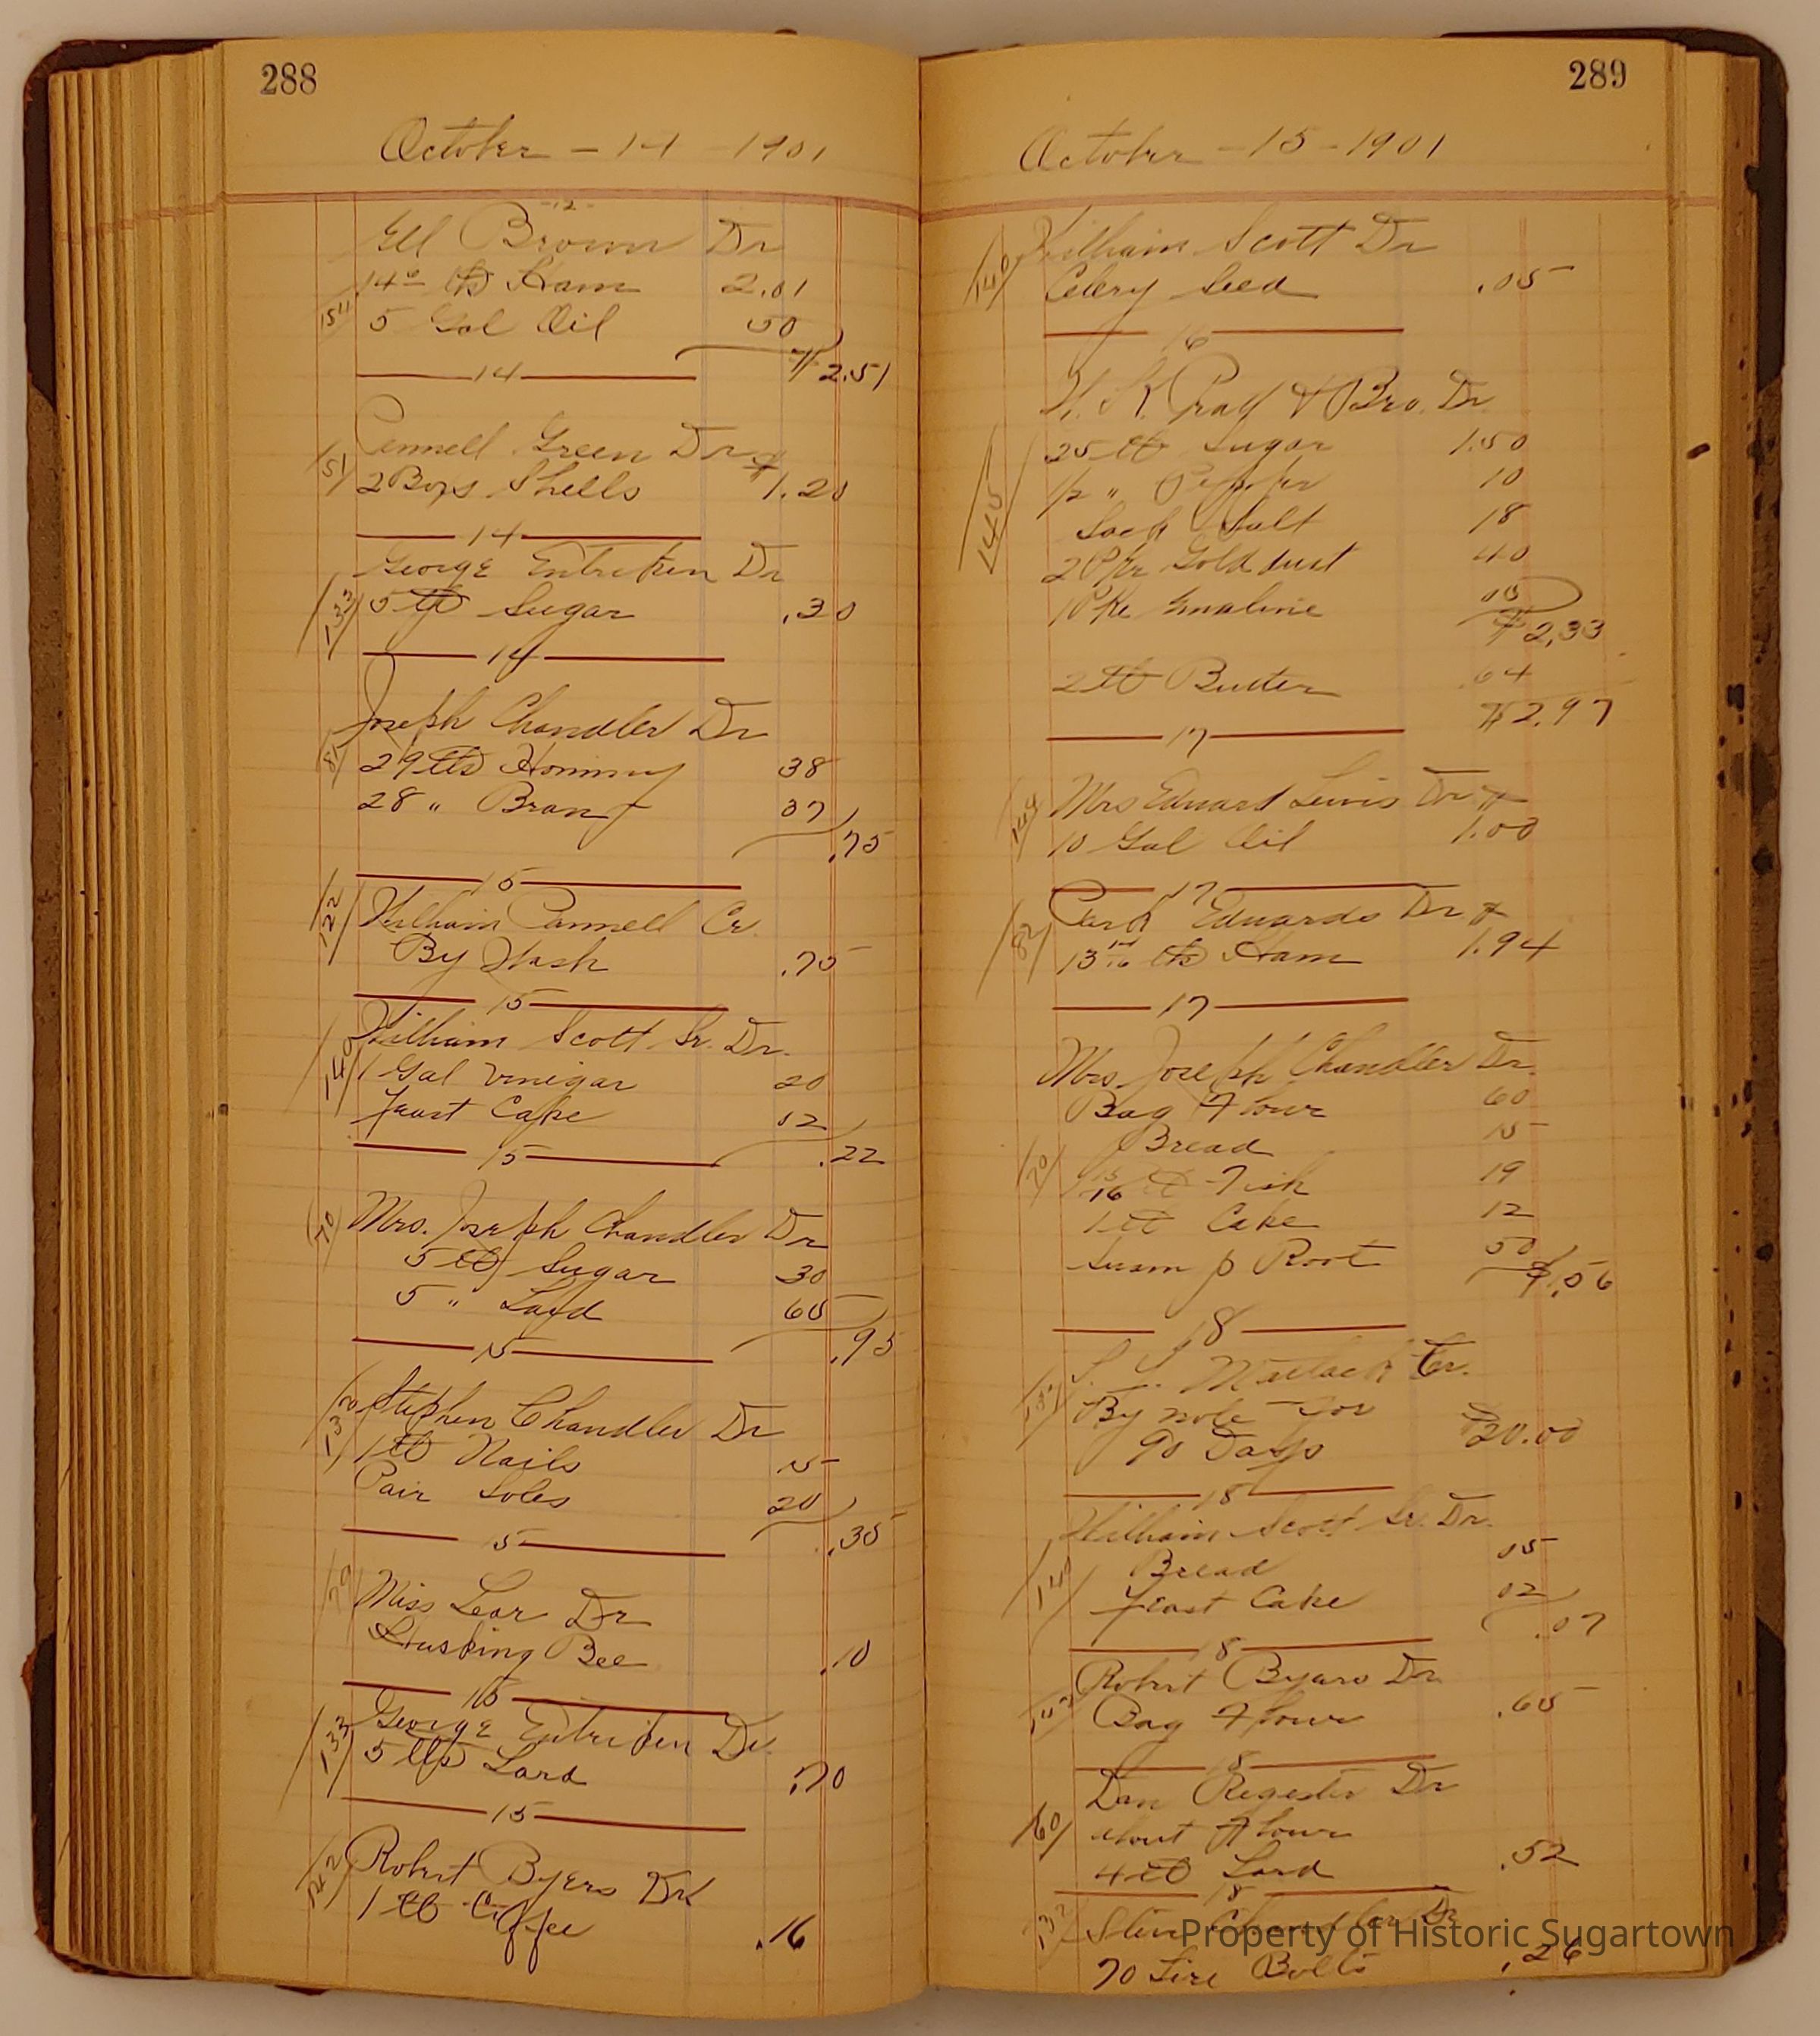 288
October - 14 - 1901
-12-
Ell Brown Dr
14 lb Ham 2.01
154 5 Gal Oil 50
$2.51
14
Pennell Green Dr
151 2 Boxs Shells $1.20
14
George Entriken Dr
133 5 lb Sugar .30
14
Joseph Chandler Dr
81 29 lbs Hominy 38
28 " Bran 37
.75
15
122 William Pannell Cr.
By Hash .75
15
William Scott Sr. Dr.
140 1 Gal Vinigar 20
Yeast Cake 02
.22
15
70 Mrs. Joseph Chandler Dr
5 lb Sugar 30
5 " Lard 65
.95
15
132 Stephen Chandler Dr
1 lb Nails 15
Pair Soles 20
.35
15
79 Miss Lear Dr
Husking Bee .10
15
133 George Entriken Dr.
5 lbs Lard .70
15
142 Robert Byers Dr
1 lb Coffee .16
289
October - 15 - 1901
140 William Scott Dr
Celery Seed .05
16
& Bro. Dr
145 25 lb Sugar 1.50
1/2 " Pepper 10
Sack Salt 18
2 Pkr Gold dust 40
1 Pke 05
$2.33
2 lb Butter .64
$2.97
17
144 Mrs Edward Lewis Dr
10 Gal Oil 1.00
17
82 Edwards Dr
13 lb Ham 1.94
17
Mrs. Joseph Chandler Dr.
Bag Flour 60
70 Bread 15
lb Fish 19
1 lb Cake 12
Swamp Root 50
$1.56
18
Matlack Cr.
By note for
90 Days $20.00
18
William Scott Sr. Dr.
140 Bread 05
Yeast Cake 02
.07
18
142 Robert Byars Dr
Bag Flour .65
18
Dan Regester Dr
60 Flour
4 lb Lard .52
18
132 Chandler Dr
70 Tire Bolts .26
Property of Historic Sugartown